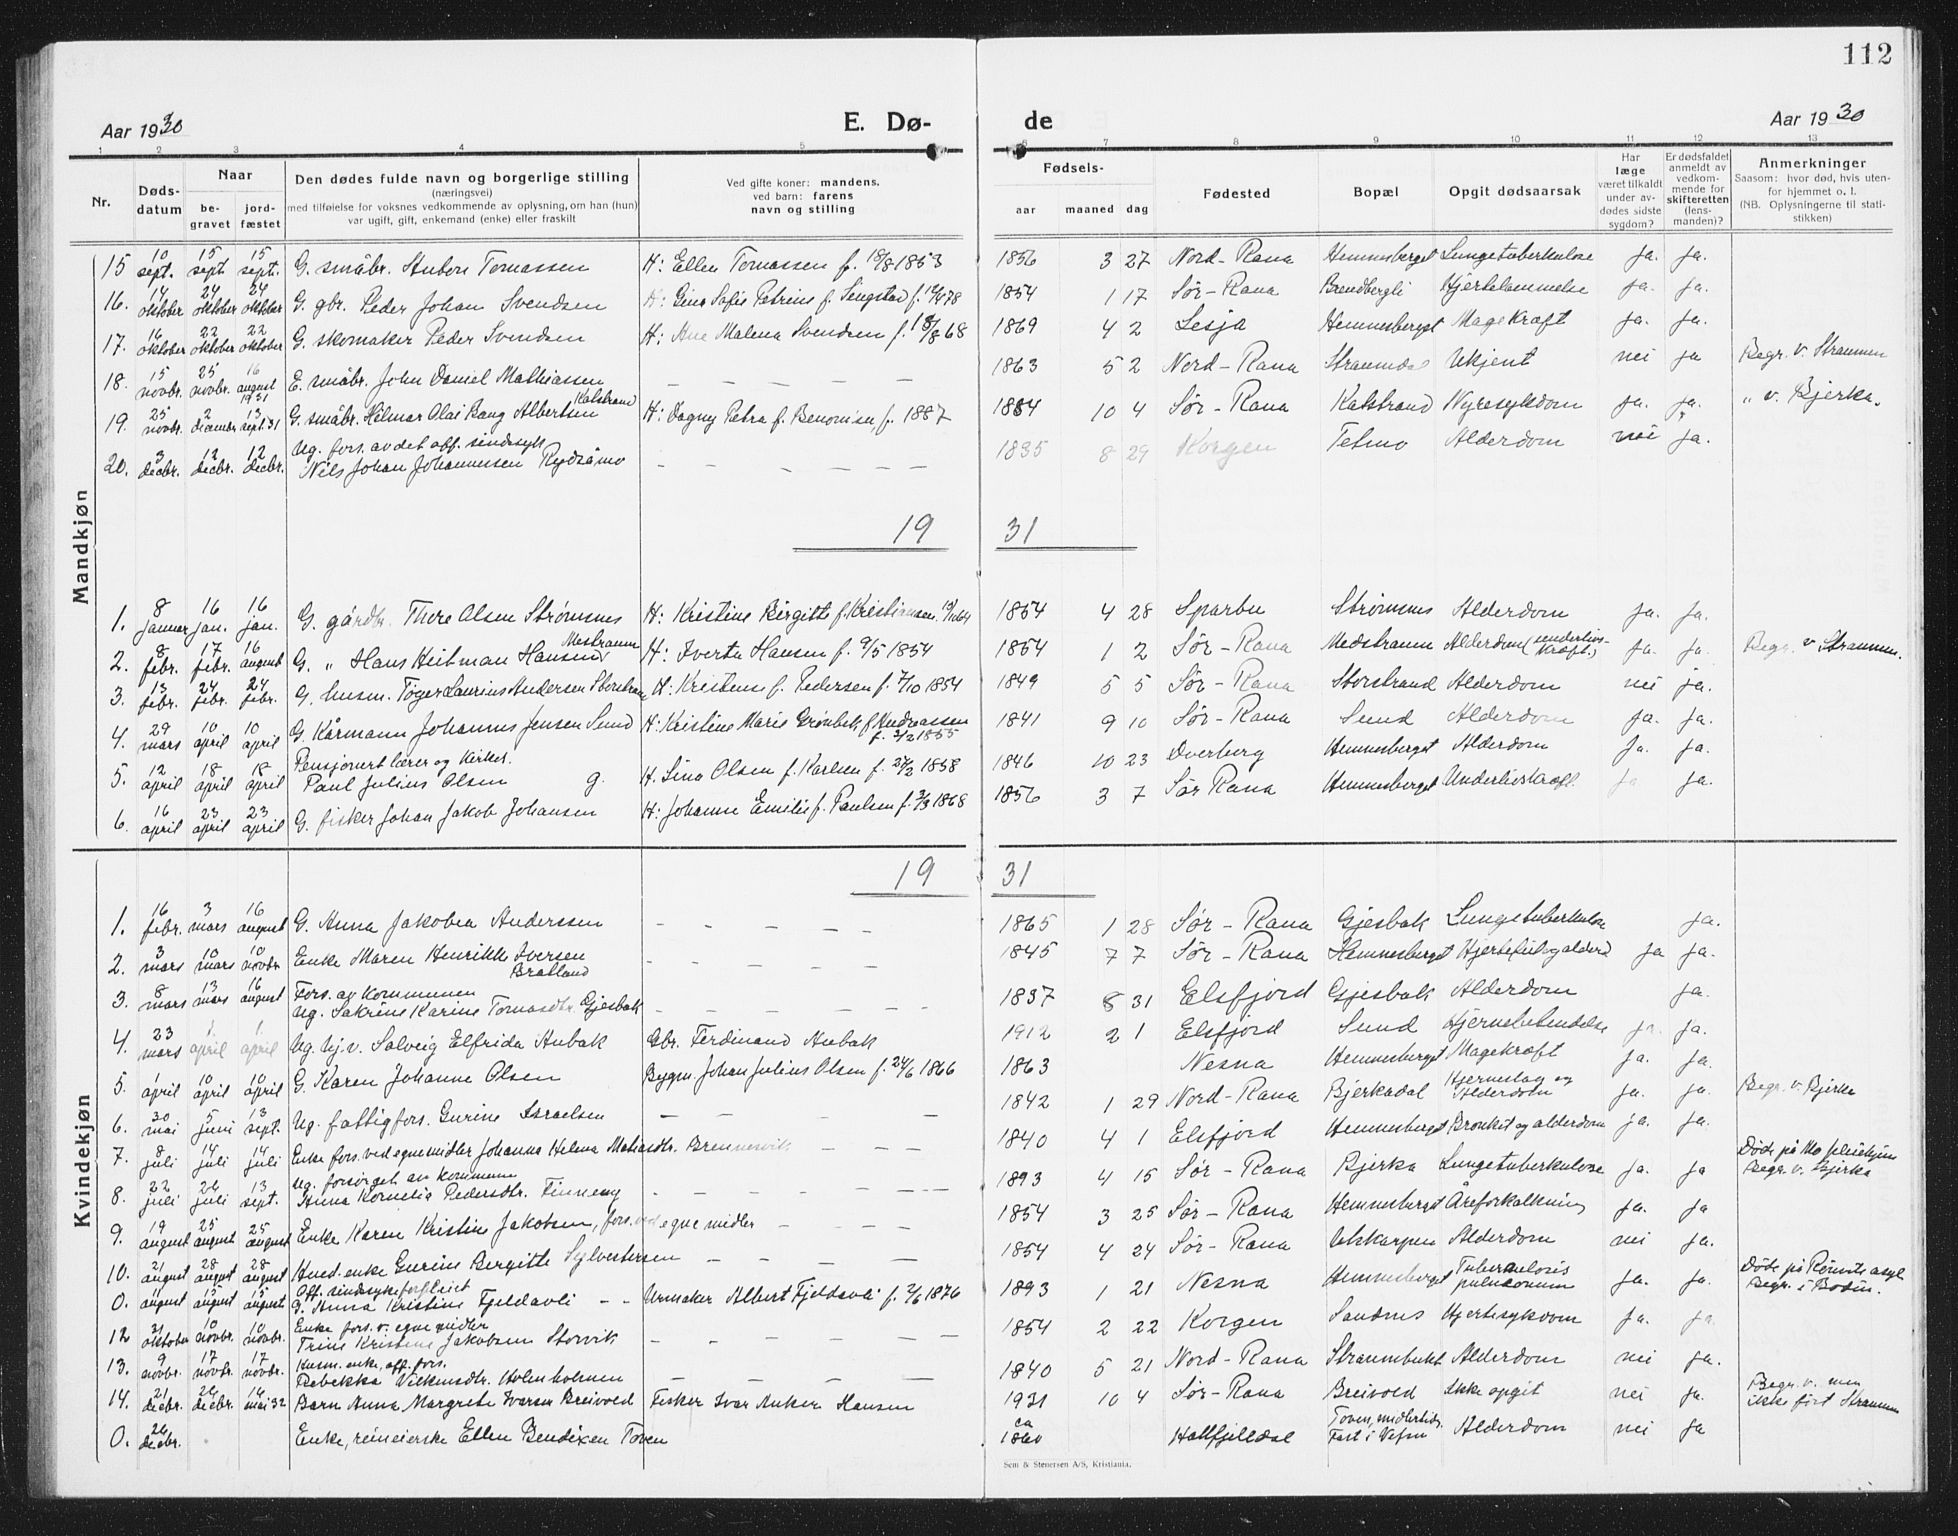 112
Aar 1930
E. Dø-
de
Aar 1930
1 2 3 4 5 6 7 8 9 10 11 12 13
Nr.
Døds-
datum
Naar
be-
gravet
jord-
fæstet
Den dødes fulde navn og borgerlige stilling
(næringsvei)
med tilføielse for voksnes vedkommende av oplysning, om han (hun)
var ugift, gift, enkemand (enke) eller fraskilt
Ved gifte koner: mandens.
ved barn: farens
navn og stilling
Fødsels-
aar maaned dag
Fødested
Bopæl
Opgit dødsaarsak
Har
læge
været tilkaldt
under av-
dødes sidste
sygdom?
Er dødsfaldet
anmeldt av
vedkom-
mende for
skifteretten
(lens-
manden)?
Anmerkninger
Saasom: hvor død, hvis uten-
for hjemmet o. l.
(NB. Oplysningerne til stati-
stikken)
Mandkjøn
15 10 sept. 15 sept 15 sept. G. småbr. Anton Tomassen H: Ellen Tomassen f. 18/8 1853 1856 3 27 Nord-Rana Hemnesberget Lungetuberkulose ja. ja.
16. 14 oktober 24 oktober 24 oktober G. gbr. Peder Johan Svendsen H: Gina Sofie Petrine f. 1854 1 17 Sør-Rana Brendbergli Hjertelammelse ja. ja.
17. 16 oktober 22 oktober 22 oktober G. skomaker Peder Svendsen H: Ane Malena Svendsen f. 1868 1869 4 2 Lesja Hemnesberget Magekræft ja. ja.
18. 15 novbr. 25 novbr. 16 august 1931 E. småbr. John Daniel Mathiassen — — — — — 1863 5 2 Nord-Rana Straumdal Ukjent nei ja Begr. v. Straumen
19. 25 novbr. 2 december 13 sept. 31 G. småbr. Hilmar Olai Bang Albertsen Kalstrand H: Dagny Petra f. Benonisen, f. 1887 1884 10 4 Sør-Rana Kalstrand Nyresykdom ja. ja. " v. Bjerka.
20. 3 decbr. 12 decbr. 12 decbr. Ug. fors. av det off. sindssyk
Nils Johan Johannesen Rydsåmo — — — — — — 1835 8 29 Korgen Tetmo Alderdom nei ja.
19 31
1. 8 januar 16 jan. 16 jan. G. gårdbr. Thore Olsen Strømsnes H: Kristine Birgitte f. Kristiansen 1854 4 28 Sparbu Strømsnes Alderdom ja. ja.
2. 8 febr. 17 febr. 16 august G. " Hans Keitman Hansen Mestraumen H: Iverta Hansen f. 9/5 1854 1854 1 2 Sør-Rana Medstraumen Alderdom (underlivskræft) ja. ja. Begr. v. Straumen.
3. 13 febr. 24 febr. 24 febr. G. husm. Tøger Laurius Andersen Storstrand H: Kristense f. Pedersen f. 7/10 1854 1849 5 5 Sør-Rana Storstrand Alderdom nei ja.
4. 29 mars 10 april 10 april G. Kårmann Johannes Jensen Sund H: Kristine Marie Grønbek, f. Andreassen
f. 3/2 1855 1841 9 10 Sør-Rana Sund Alderdom ja. ja.
5. 12 april 18 april 18 april Pensjonert lærer og kirkes.
Paul Julius Olsen g. H. Lina Olsen f. Karlsen f. 27/2 1858 1846 10 23 Dverberg Hemnesberget Alderdom ja. ja.
6. 16 april 23 april 23 april G. fisker Johan Jakob Johansen H: Johanne Emilie f. Paulsen f. 3/3 1868 1856 3 7 Sør Rana Hemnesberget Underlivskræft ja ja.
19 31
Kvindekjøn
1. 16 febr. 3 mars 16 august G. Anna Jakobea Anderssen - - - - - 1865 1 28 Sør-Rana Gjesbak Lungetuberkulose ja.
2. 3 mars 10 mars 10 novbr. Enke Maren Henrikke Iversen
Bratland - - - - - 1845 7 7 Sør-Rana Hemnesberget Hjertefeil og alderd ja ja.
3. 8 mars 13 mars 16 august Fors. av kommunen
Ug. Sakrine Karine Tomasdtr. Gjesbak - - - - - 1837 8 31 Elsfjord Gjesbak Alderdom ja.
4. 23 mars 1. april 1. april Ug. hj.v. Solveig Elfrida Aubak Gbr. Ferdinand Aubak 1912 2 1 Elsfjord Sund Hjernebetendelse ja. ja.
5. 1 april 10 april 10 april G. Karen Johanne Olsen Bygm. Johan Julius Olsen f. 24/6 1866 1863 Nesna Hemnesberget Magekræft ja. ja.
6. 30 mai 5 juni 13 sept. Ug. fattigfors. Gurine Israelsen — — — — 1842 1 29 Nord-Rana Bjerkadal Hjerneslag og
Alderdom ja. ja. Begr. v. Bjerka
7. 8 juli 14 juli 14 juli Enke fors. ved egne midler Johanna Helena Matiasdtr. Brennesvik — — — 1840 4 1 Elsfjord Hemnesberget Bronkit og alderdom ja. ja.
8. 22 juli 26 juli 13 sept. Ug. forsørget av kommunen
Anna Kornelia Pedersdtr. Finneng - - - - - 1893 4 15 Sør-Rana Bjerka Lungetuberkulose ja. ja Døde på Mo pleiehjem
Begr. v. Bjerka
9. 19 august 25 august 25 august Enke Karen Kristine Jakobsen, fors. ved egne midler - - - 1854 3 25 Sør-Rana Hemnesberget Åreforkalkning ja. ja
10. 21 august 28 august 28 august Hued. enke Gurine Bergitte Sylvestersen — — — — 1854 4 24 Sør-Rana Alderdom nei ja.
0. 11 august 15 august 15 august Off. sindssykeforpleiet
G. Anna Kristine Fjeldavli - - Urmaker Albert Fjeldavli f. 7/6 1876 1893 1 21 Nesna Hemnesberget Tuberculosis
pulmonum ja. ja. Døde på Rønvik asyl
Begr. i Bodin.
12 31 oktober 10 novbr. 10 novbr. Enke fors. v. egne midler
Trine Kristine Jakobsen Storvik - - - - - 1854 2 22 Korgen Sandnes Hjertesykdom ja. ja.
13. 9 novbr. 17 novbr. 17 novbr. Husm. enke, off. fors.
Rebekka Vilkensdtr. Holmholmen — — — — — 1840 5 21 Nord-Rana Straumbukt Alderdom nei ja.
14. 21 decbr. 26 decbr. 16 mai 32 Barn Anna Margrete Ivarsen Breivold Fisker Ivar Anker Hansen 1931 10 4 Sør-Rana Breivold Ikke opgit nei ja. Begr. v. men
ikke ført Straumen
0. 26 decbr. Enke, reineierske Ellen Bendixen Toven ca 1860 Hattfjelldal Toven, midlertid.
Fast i Vefsn Alderdom nei ja
Sem & Stenersen A/S, Kristiania.